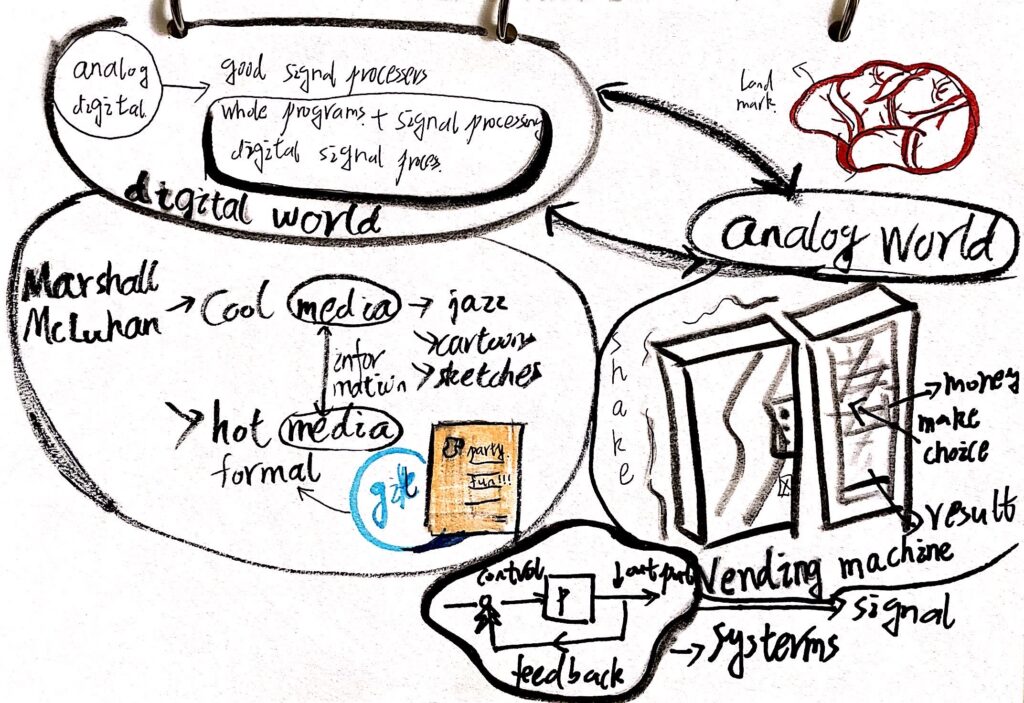 analog
digital
good signal processers
whole programs + signal processing
digital signal proces.
digital world
Land
mark
analog world
Marshall
McLuhan
cool media
jazz
cartoons
sketches
infor
mation
hot media
formal
gift
party
fun!!!
shake
money
make
choice
result
Vending machine
signal
control
P
output
feedback
systerms